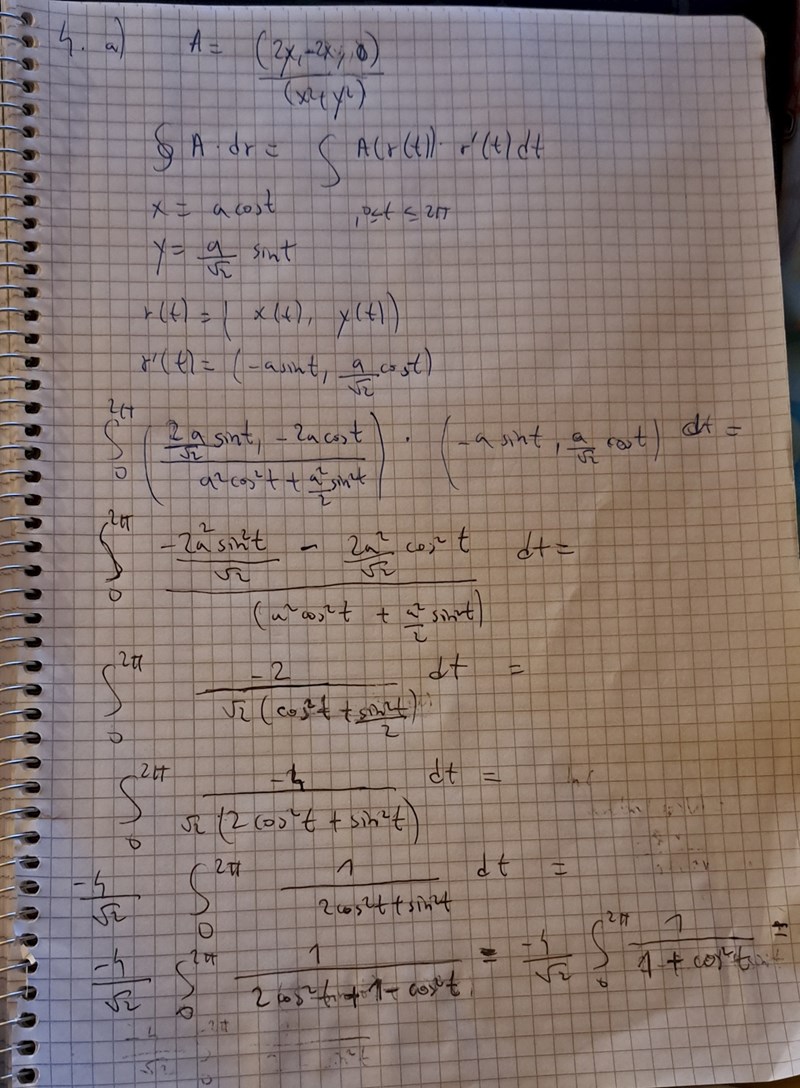 4. a) A = (2x, -2x, 0) / (x²+y²)
∮ A · dr = ∫ A(r(t)) · r'(t) dt
x = a cost , 0≤t ≤ 2π
y = a/√2 sint
r(t) = ( x(t), y(t) )
r'(t) = (-a sint, a/√2 cost)
∫₀^2π ( (2a/√2 sint, -2a cost) / (a²cos²t + a²/2 sin²t) ) · (-a sint, a/√2 cost) dt =
∫₀^2π (-2a² sin²t/√2 - 2a²/√2 cos²t) / (a²cos²t + a²/2 sin²t) dt =
∫₀^2π -2 / (√2 (cos²t + sin²t/2)) dt =
∫₀^2π -4 / (√2 (2cos²t + sin²t)) dt =
-4/√2 ∫₀^2π 1 / (2cos²t + sin²t) dt =
-4/√2 ∫₀^2π 1 / (2cos²t + 1 - cos²t) = -4/√2 ∫₀^2π 1 / (1 + cos²t) =